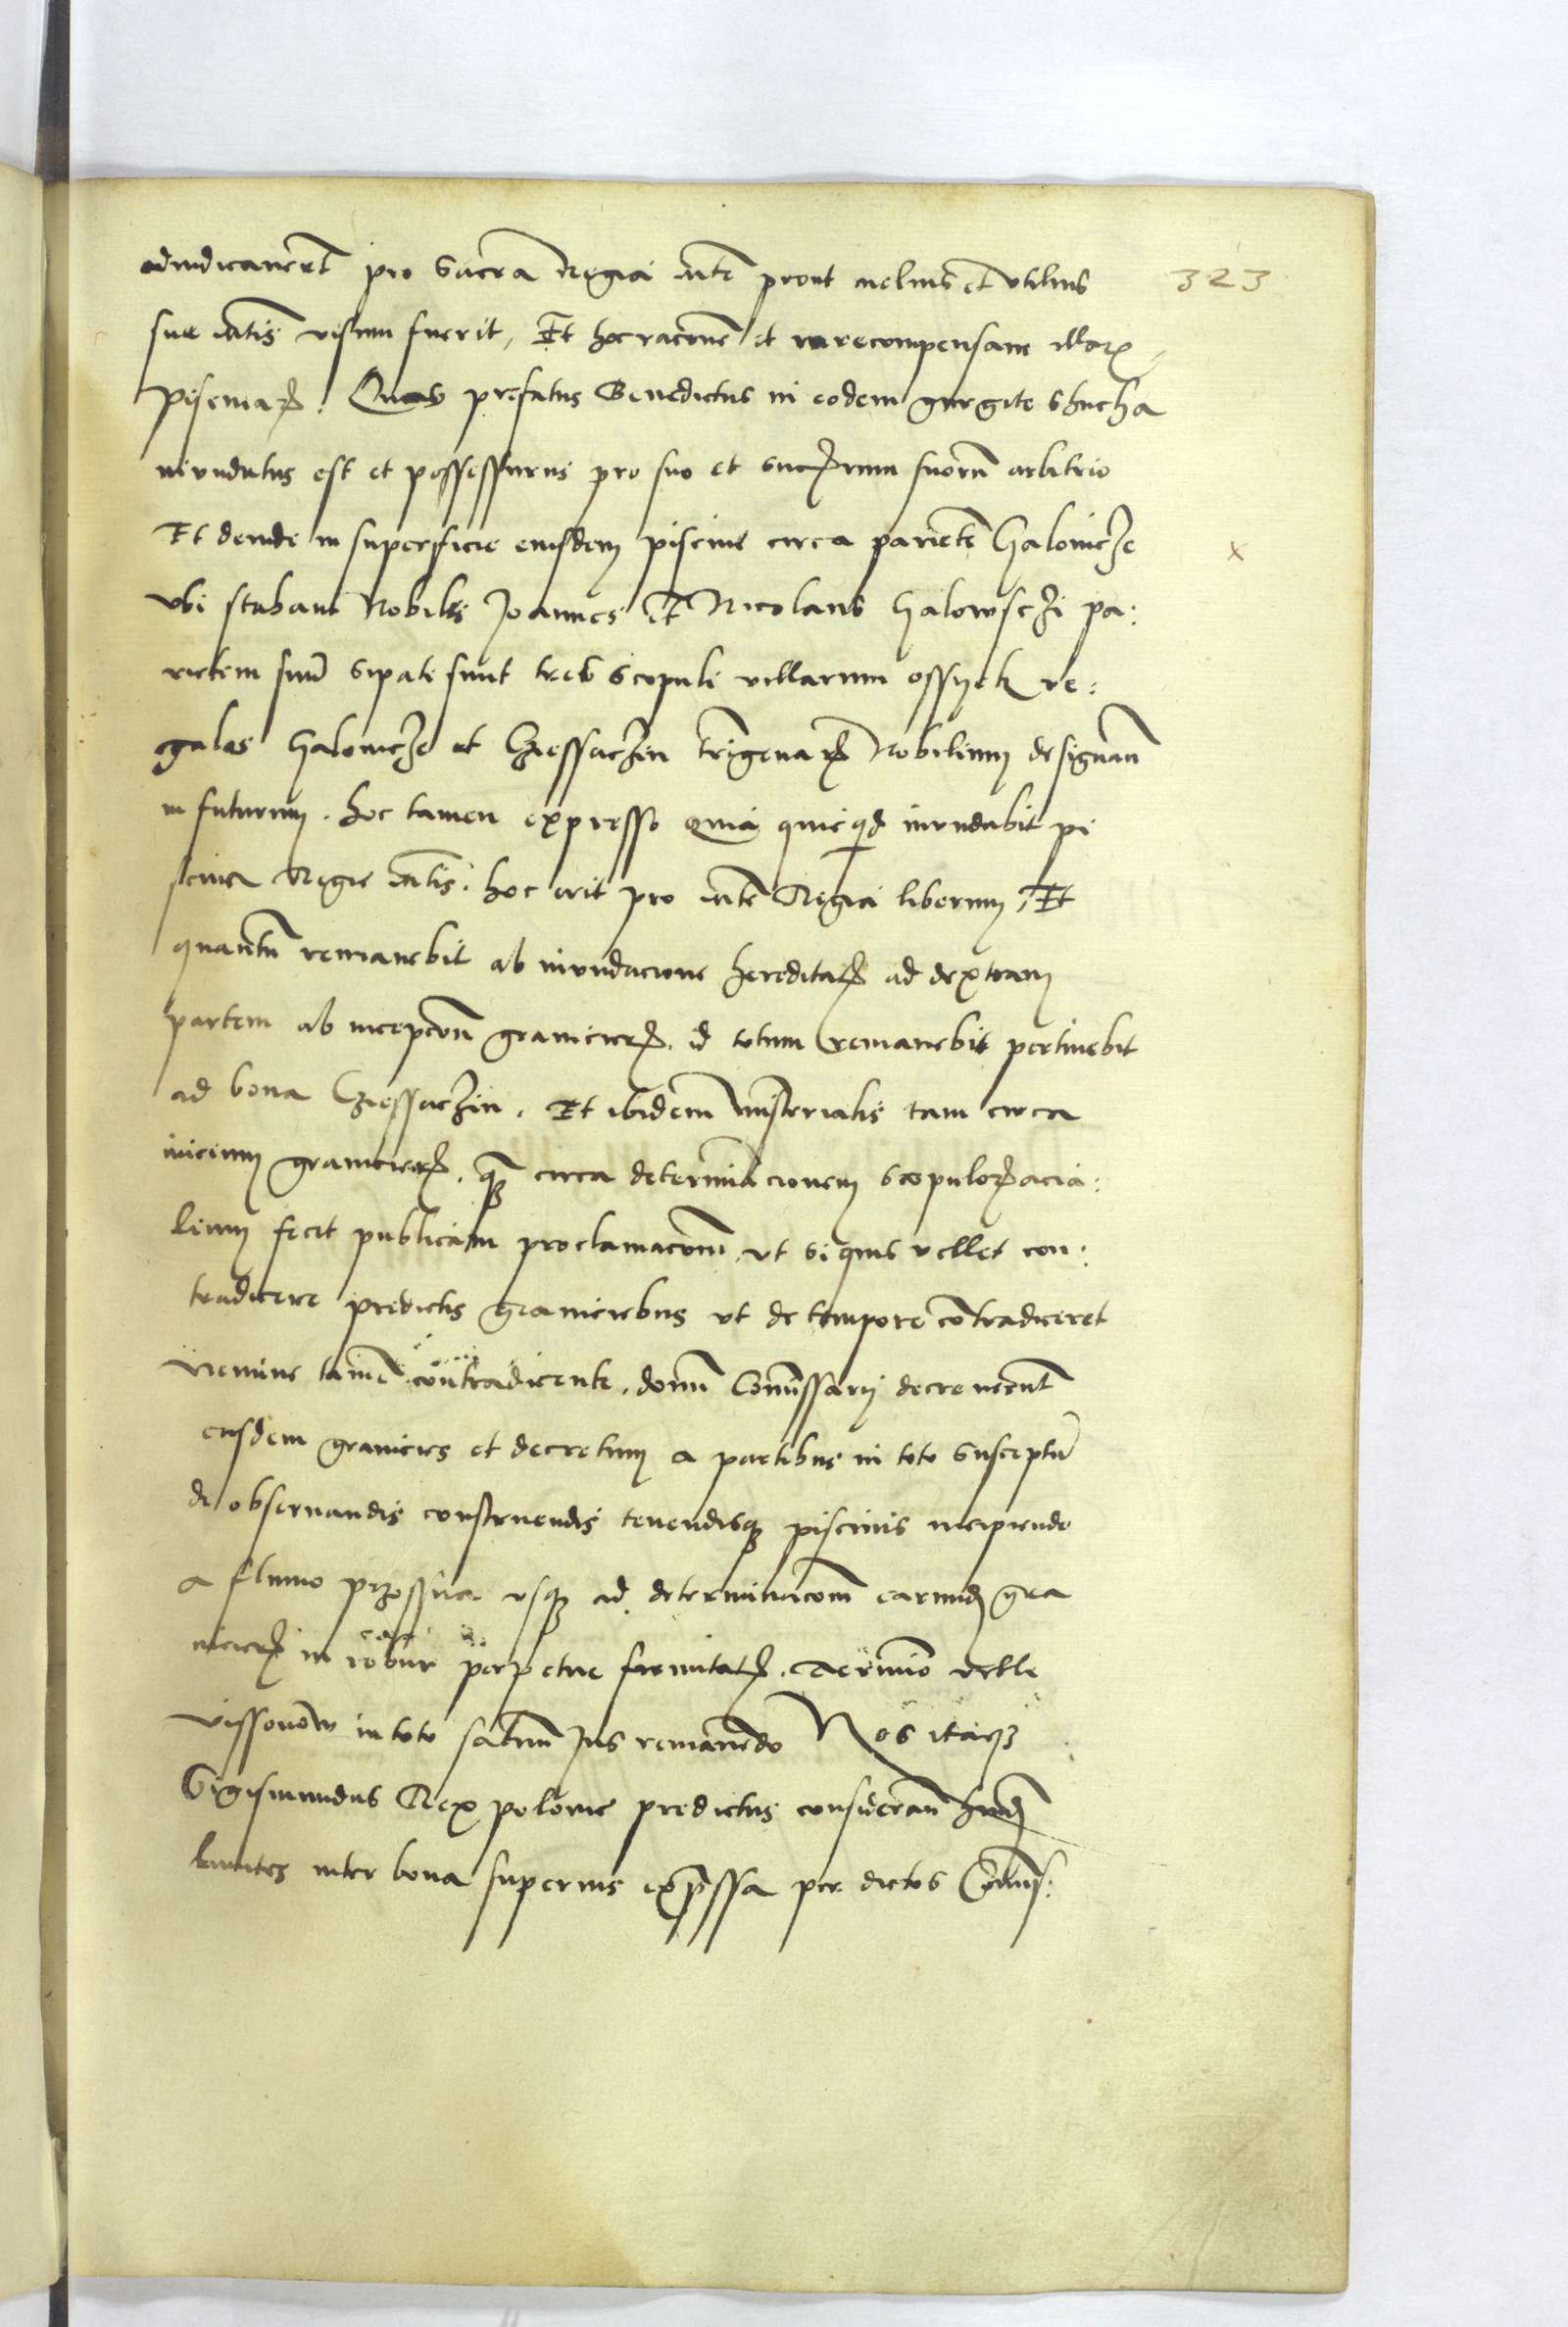 adiudicaverit pro Sacra Regia mte prout melius et utilius
323
sue mtis visum fuerit, Et hoc racione et in recompensam illarum
piscinarum. Quas prefatus Benedictus in eodem gurgite Shucha
inundatus est et possessurus pro suo et successorum suorum arbitrio
Et deinde in superficie eiusdem piscine circa parietem Halowicze
x
ubi stabant Nobiles Joannes Et Nicolaus Halowsczi pa:
rietem suum sipati sunt tres scopuli villarum ossyek re:
gales Halowicze et Czessaczin Nobilium designan
in futurum. hoc tamen expresso quia quicquid inundabit pi
scina Regie mtis. hoc erit pro mte Regia liberum, Et
quantum remanebit ab inundacione hereditatum ad dextram
partem ab incepcione granicierum. id totum remanebit pertinebit
ad bona Czessaczin. Et ibidem ministerialis tam circa
inicium granicierum. quam circa determinacionem scopulorum acia:
lium fecit publicam proclamacionem ut si quis vellet con:
tradicere predictis graniciebus ut de tempore contradiceret
Nemine tamen contradicente. domini Commissarii decreverunt
easdem granicies et decretum a partibus in toto susceptum
de observandis construendis tenendisque piscinis incipiendo
a fluvio usque ad determinacionem earundem gra
nicierum in robur perpetue firmitatis. Termino
in toto salvum Jus remanendo Nos itaque
Sigismundus Rex polonie predictus consideran huiusmodi
limites inter bona superius expressa per dictos Commiss: